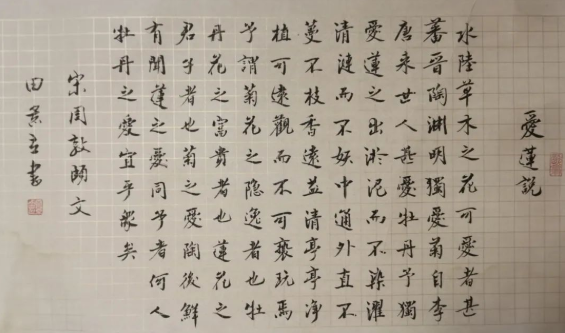 愛蓮說
水陸草木之花可愛者甚
蕃晉陶淵明獨愛菊自李
唐来世人甚愛牡丹予獨
愛蓮之出淤泥而不染濯
清漣而不妖中通外直不
蔓不枝香遠益清亭亭净
植可遠觀而不可褻玩焉
予謂菊花之隐逸者也牡
丹花之富貴者也蓮花之
君子者也菊之愛陶後鮮
有聞蓮之愛同予者何人
牡丹之愛宜乎眾矣
宋周敦頤文
田景書